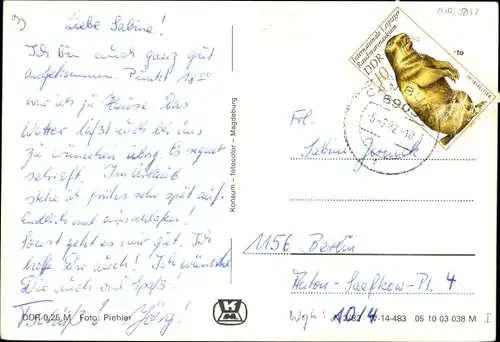 Liebe Sabine!
Ich bin auch ganz gut
angekommen. Punkt 18⁰⁰
war ich zu Hause. Das
Wetter läßt auch bei uns
zu wünschen übrig. Es regnet
sehr oft. Im Urlaub
stehe ich früh sehr spät auf.
Endlich mal ausschlafen!
Sonst geht es mir gut. Ich
hoffe Dir auch! Ich wünsche
Dir auch viel Spaß!
Tschüß! Jörg!
DDR 0,25 M Foto: Piehler
Konsum – fotocolor – Magdeburg
Internationale Leipziger
Rauchwarenauktion
DDR
10
8903
-5.-7.82.-10
Frl.
Sabine
1156 Berlin
Anton-Saefkow-Pl. 4
Whg: 1014
14-483 05 10 03 038 M I